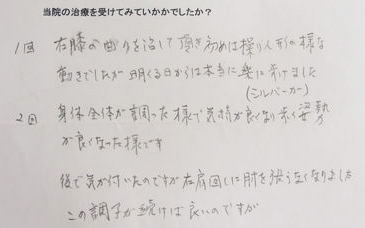 当院の治療を受けてみていかがでしたか？
1回 右膝の曲りを治して頂き初めは操り人形の様な
動きでしたが明くる日からは本当に楽に歩けました
(シルバーカー)
2回 身体全体が調った様で気持が良くなり歩く姿勢
が良くなった様です
後で気が付いたのですが右肩回しに肘を使うなくなりました
この調子が続けば良いのですが